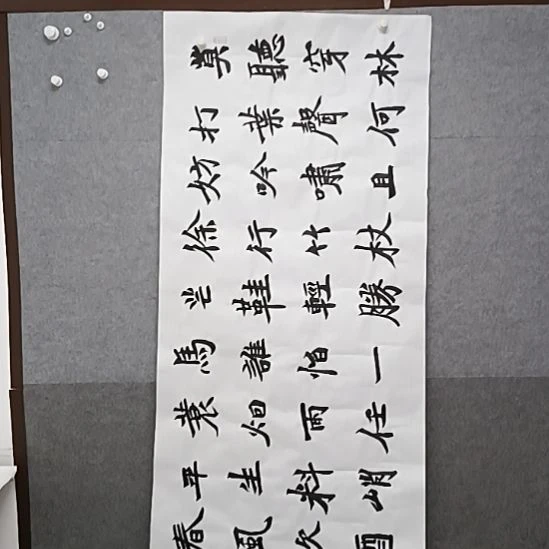 莫聽穿林
打葉聲何
妨吟嘯且
徐行竹杖
芒鞋輕勝
馬誰怕一
蓑烟雨任
平生料峭
春風吹酒